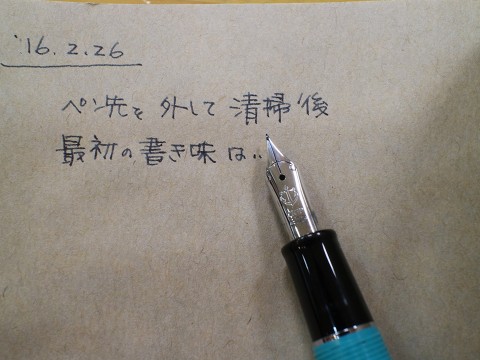 '16.2.26
ペン先を外して清掃後
最初の書き味は‥